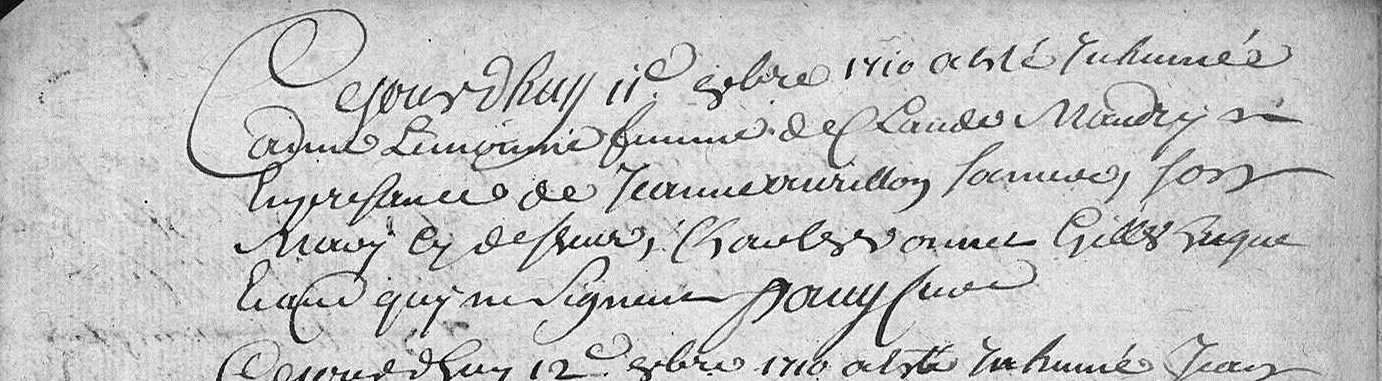 Cejourdhuy 11e 9bre 1710 a esté Inhumée
Lemoinne femme de Claude Maudry
En presance de Jeanne sa mere, son
Mary cy dessus, Charles vonnet Gilles
quy ne Signent Pouy Curé
Cejourdhuy 12e 9bre 1710 a esté Inhumé Jean